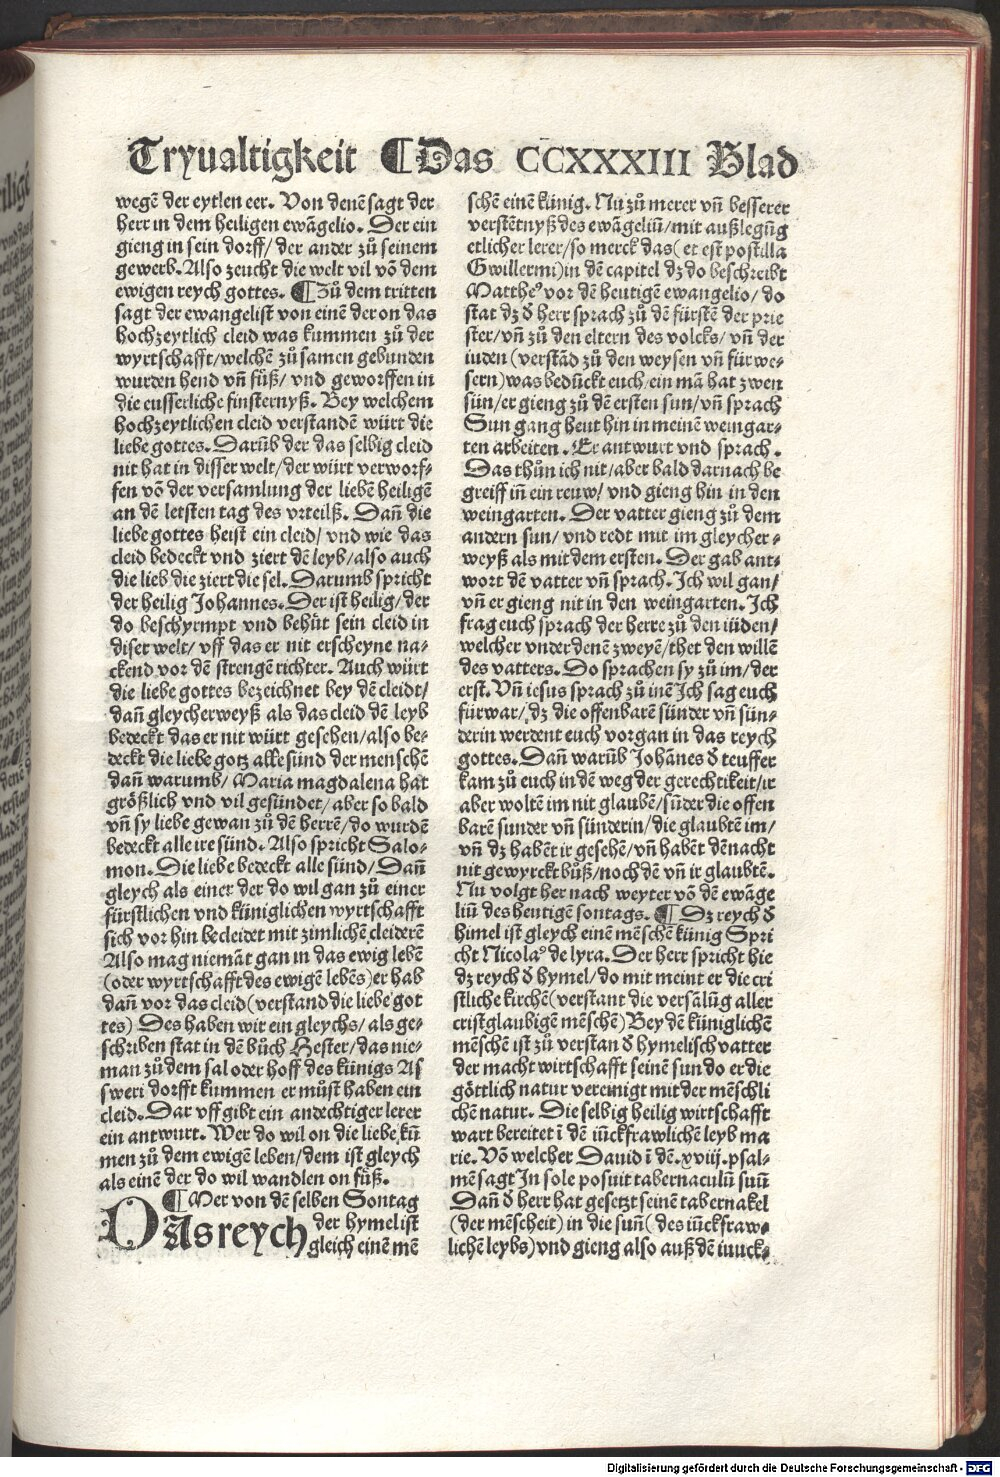 Tryualtigkeit ¶ Das CCXXXIII Blad
wegē der eytlen eer. Von denē sagt der
herr in dem heiligen ewāgelio. Der ein
gieng in sein dorff/ der ander zů seinem
gewerb. Also zeucht die welt vil vō dem
ewigen reych gottes. ¶ Zů dem tritten
sagt der ewangelist von einē der on das
hochzeytlich cleid was kummen zů der
wyrtschafft/ welchē zů samen gebunden
wurden hend vñ fůß/ vnd geworffen in
die eusserliche finsternyß. Bey welchem
hochzeytlichen cleid verstandē würt die
liebe gottes. Darūb der das selbig cleid
nit hat in disser welt/ der würt verworf⸗
fen vō der versamlung der liebē heiligē
an dē letsten tag des vrteilß. Dañ die
liebe gottes heist ein cleid/ vnd wie das
cleid bedeckt vnd ziert dē leyb/ also auch
die lieb die ziert die sel. Darumb spricht
der heilig Johannes. Der ist heilig/ der
do beschyrmpt vnd behüt sein cleid in
diser welt/ vff das er nit erscheyne na⸗
ckend vor dē strengē richter. Auch würt
die liebe gottes bezeichnet bey dē cleidt/
dañ gleycherweyß als das cleid dē leyb
bedeckt das er nit würt gesehen/ also be⸗
deckt die liebe gotz alle sünd der menschē
dañ warumb/ Maria magdalena hat
größlich vnd vil gesündet/ aber so bald
vñ sy liebe gewan zů dē herrē/ do wurdē
bedeckt alle ire sünd. Also spricht Salo⸗
mon. Die liebe bedeckt alle sünd/ Dañ
gleych als einer der do wil gan zů einer
fürstlichen vnd küniglichen wyrtschafft
sich vor hin becleidet mit zimlichē cleiderē
Also mag niemāt gan in das ewig lebē
(oder wyrtschafft des ewigē lebēs) er hab
dañ vor das cleid (verstand die liebe got
tes) Des haben wir ein gleychs/ als ge⸗
schriben stat in dē bůch Hester/ das nie⸗
man zů dem sal oder hoff des künigs As
sweri dorfft kummen er můst haben ein
cleid. Dar vff gibt ein andechtiger lerer
ein antwurt. Wer do wil on die liebe kū
men zů dem ewigē leben/ dem ist gleych
als einē der do wil wandlen on fůß.
¶ Mer von dē selben Sontag
DAs reych der hymel ist
gleich einē mē
schē einē künig. Nu zů merer vñ besserer
verstētnyß des ewāgeliū/ mit außlegūg
etlicher lerer/ so merck das (et est postilla
Gwillermi) in dē capitel dz do beschreibt
Mattheꝰ vor dē heutigē ewangelio/ do
stat dz d̄ herr sprach zů dē fürstē der prie
ster/ vñ zů den eltern des volcks/ vñ der
iuden (verstād zů den weysen vñ fürwe⸗
sern) was bedūckt euch/ ein mā hat zwen
sün/ er gieng zů dē ersten sun/ vñ sprach
Sun gang heut hin in meinē weingar⸗
ten arbeiten. Er antwurt vnd sprach.
Das thůn ich nit/ aber bald darnach be
greiff iñ ein reuw/ vnd gieng hin in den
weingarten. Der vatter gieng zů dem
andern sun/ vnd redt mit im gleycher⸗
weyß als mit dem ersten. Der gab ant⸗
wort dē vatter vñ sprach. Ich wil gan/
vñ er gieng nit in den weingarten. Ich
frag euch sprach der herre zů den iüden/
welcher vnder denē zweyē/ thet den willē
des vatters. Do sprachen sy zů im/ der
erst. Vñ iesus sprach zů inē Ich sag euch
fürwar/ dz die offenbarē sünder vñ sün⸗
derin werdent euch vorgan in das reych
gottes. Dañ warūb Johānes d̄ teuffer
kam zů euch in dē weg der gerechtikeit/ ir
aber woltē im nit glaubē/ sūder die offen
barē sunder vñ sünderin/ die glaubtē im/
vñ dz habēt ir gesehē/ vñ habēt dēnacht
nit gewyrckt bůß/ noch dē vñ ir glaubtē.
Nu volgt her nach weyter vō dē ewāge
liū des heutigē sontags. ¶ Dz reych d̄
himel ist gleych einē mēschē künig Spri
cht Nicolaꝰ de lyra. Der herr spricht hie
dz reych d̄ hymel/ do mit meint er die cri
stliche kirchē (verstant die versālūg aller
cristglaubigē mēschē) Bey dē küniglichē
mēschē ist zů verstan d̄ hymelisch vatter
der macht wirtschafft seinē sun do er die
göttlich natur vereinigt mit der mēschli
chē natur. Die selbig heilig wirtschafft
wart bereitet ī dē iūckfrawlichē leyb ma
rie. Vō welcher Dauid ī dē .xviij. psal⸗
mē sagt In sole posuit tabernaculū suū
Dañ d̄ herr hat gesetzt seinē tabernakel
(der mēscheit) in die suñ (des iūckfraw⸗
lichē leybs) vnd gieng also auß dē iunck⸗
Digitalisierung gefördert durch die Deutsche Forschungsgemeinschaft - DFG